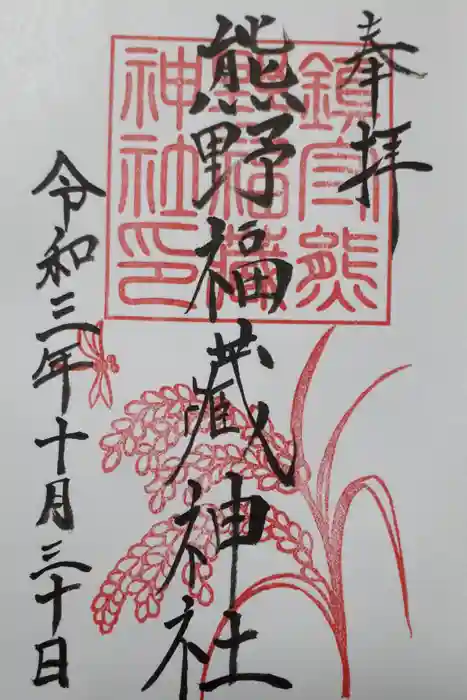 奉拝
熊野福藏神社
令和三年十月三十日
鎮守熊
野福藏
神社印